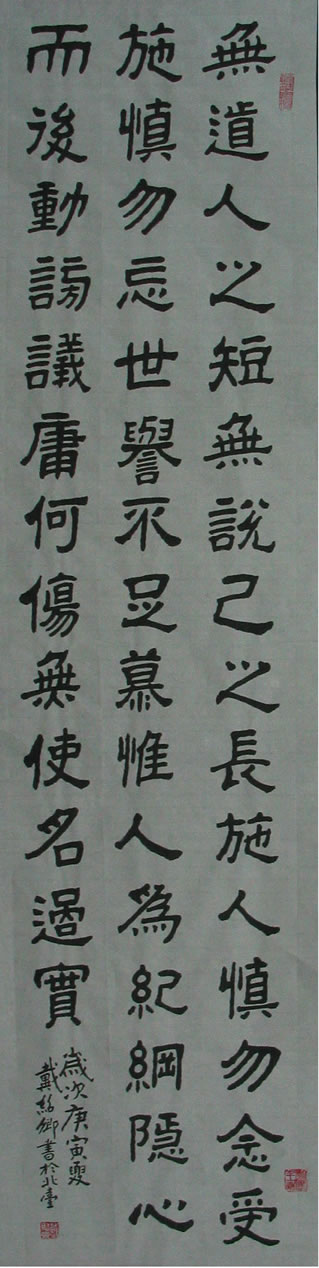 無道人之短無說己之長施人慎勿念受
施慎勿忘世譽不足慕惟人為紀綱隱心
而後動謗議庸何傷無使名過實
歲次庚寅夏
戴紹卿書於北臺